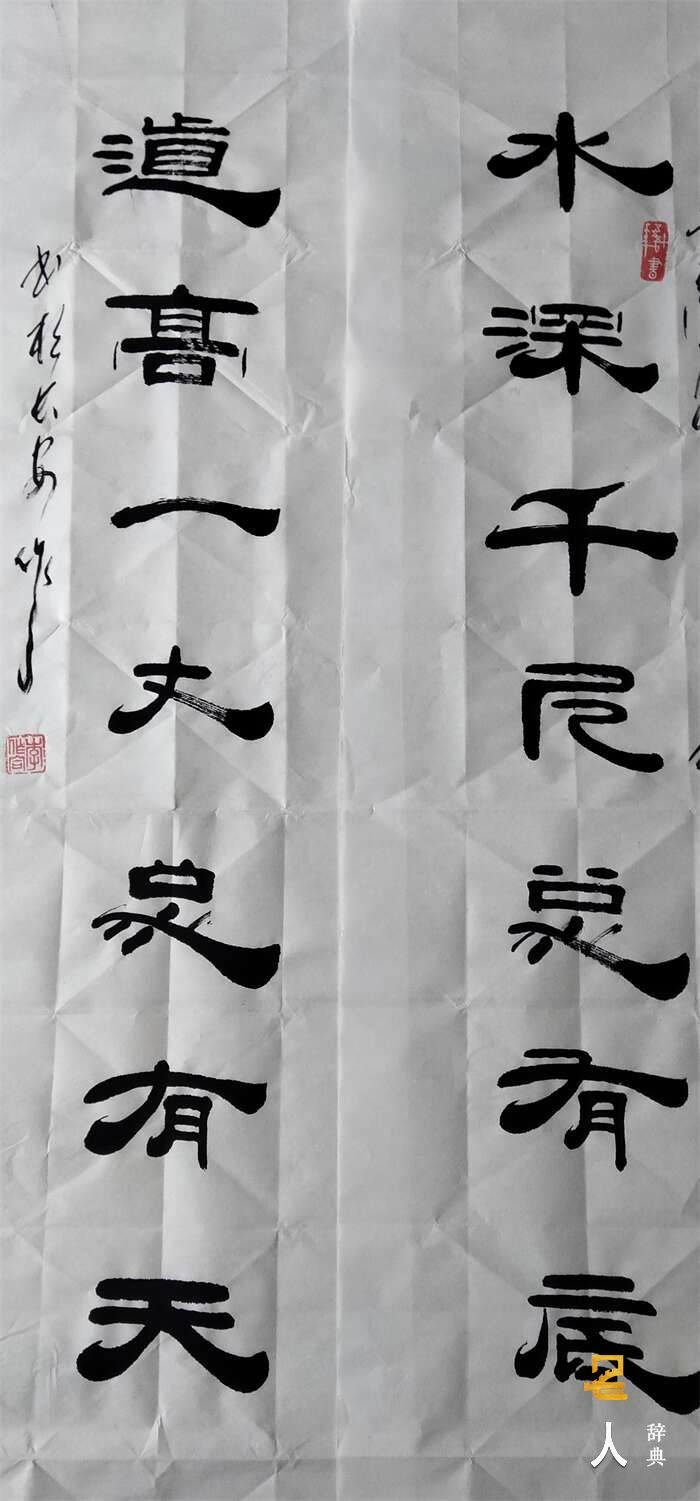 水深千尺总有底
道高一丈总有天
书於长安
名人辞典